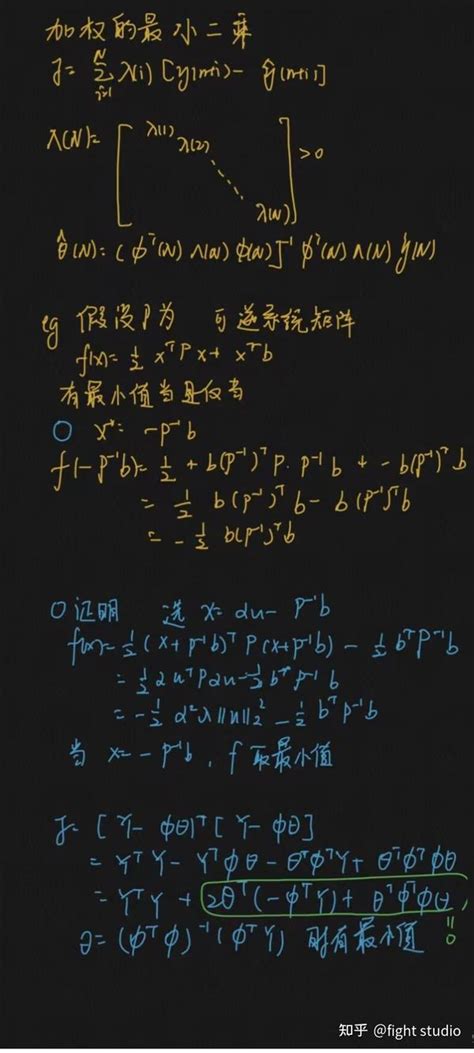 加权的最小二乘
J = Σ_{i=1}^{N} λ(i) [y(n+i) - ŷ(n+i)]
Λ(N) = [ λ(1) λ(2) ⋱ λ(N) ] > 0
θ̂(N) = (φᵀ(N) Λ(N) φ(N)]⁻¹ φᵀ(N) Λ(N) y(N)
eg 假设P为 可逆系统矩阵
f(x) = ½ xᵀPx + xᵀb
有最小值当且仅当
○ x* = -P⁻¹b
f(-P⁻¹b) = ½ + b(P⁻¹)ᵀ P · P⁻¹b + -b(P⁻¹)ᵀ b
= ½ b(P⁻¹)ᵀ b - b(P⁻¹)ᵀ b
= -½ b(P⁻¹)ᵀ b
○ 证明 选 x = αu - P⁻¹b
f(x) = ½ (x+P⁻¹b)ᵀ P(x+P⁻¹b) - ½ bᵀP⁻¹b
= ½ αuᵀPαu - ½ bᵀP⁻¹b
= -½ α²λ‖u‖₂² - ½ bᵀP⁻¹b
当 x = -P⁻¹b , f 取最小值
J = [Y - φθ]ᵀ[Y - φθ]
= YᵀY - Yᵀφθ - θᵀφᵀY + θᵀφᵀφθ
= YᵀY + 2θᵀ(-φᵀY) + θᵀφᵀφθ
θ = (φᵀφ)⁻¹(φᵀY) 时有最小值 = 0
知乎 @fight studio